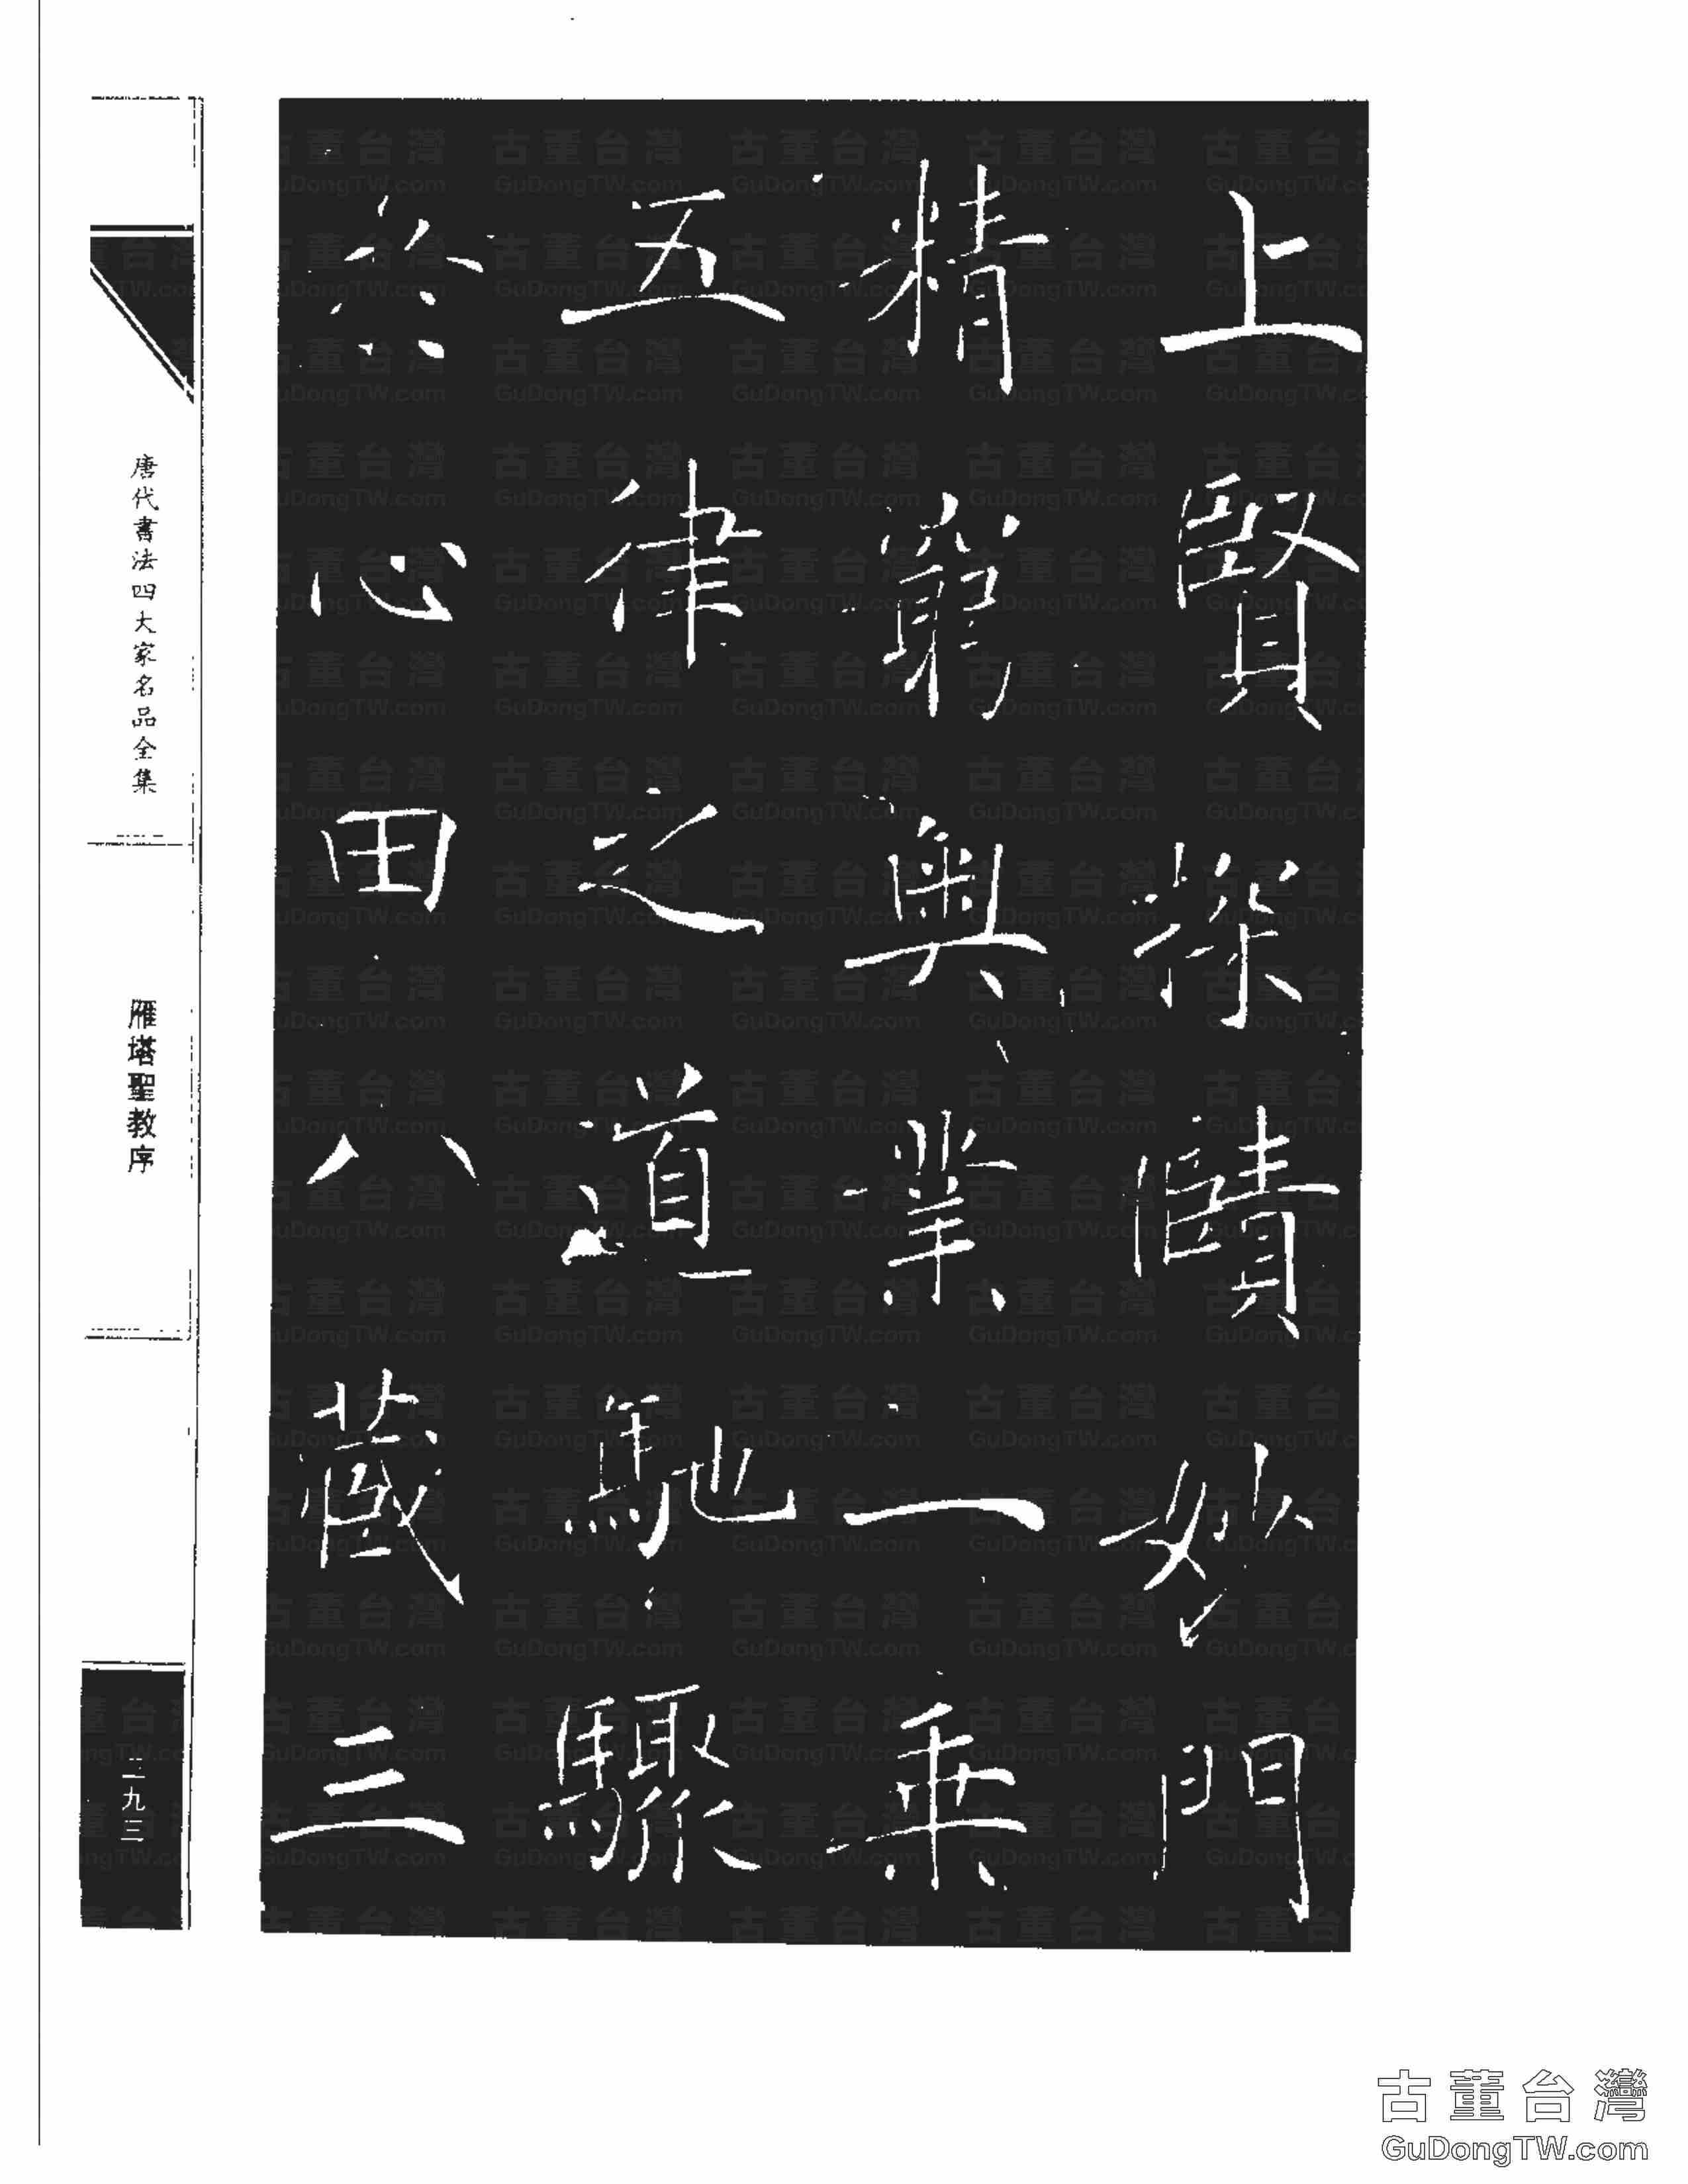 上賢探賾妙門
精窮奧業一乘
五律之道馳驟
於心田八藏三
唐代書法四大家名品全集
雁塔聖教序
二九三
古董台灣
GuDongTW.com